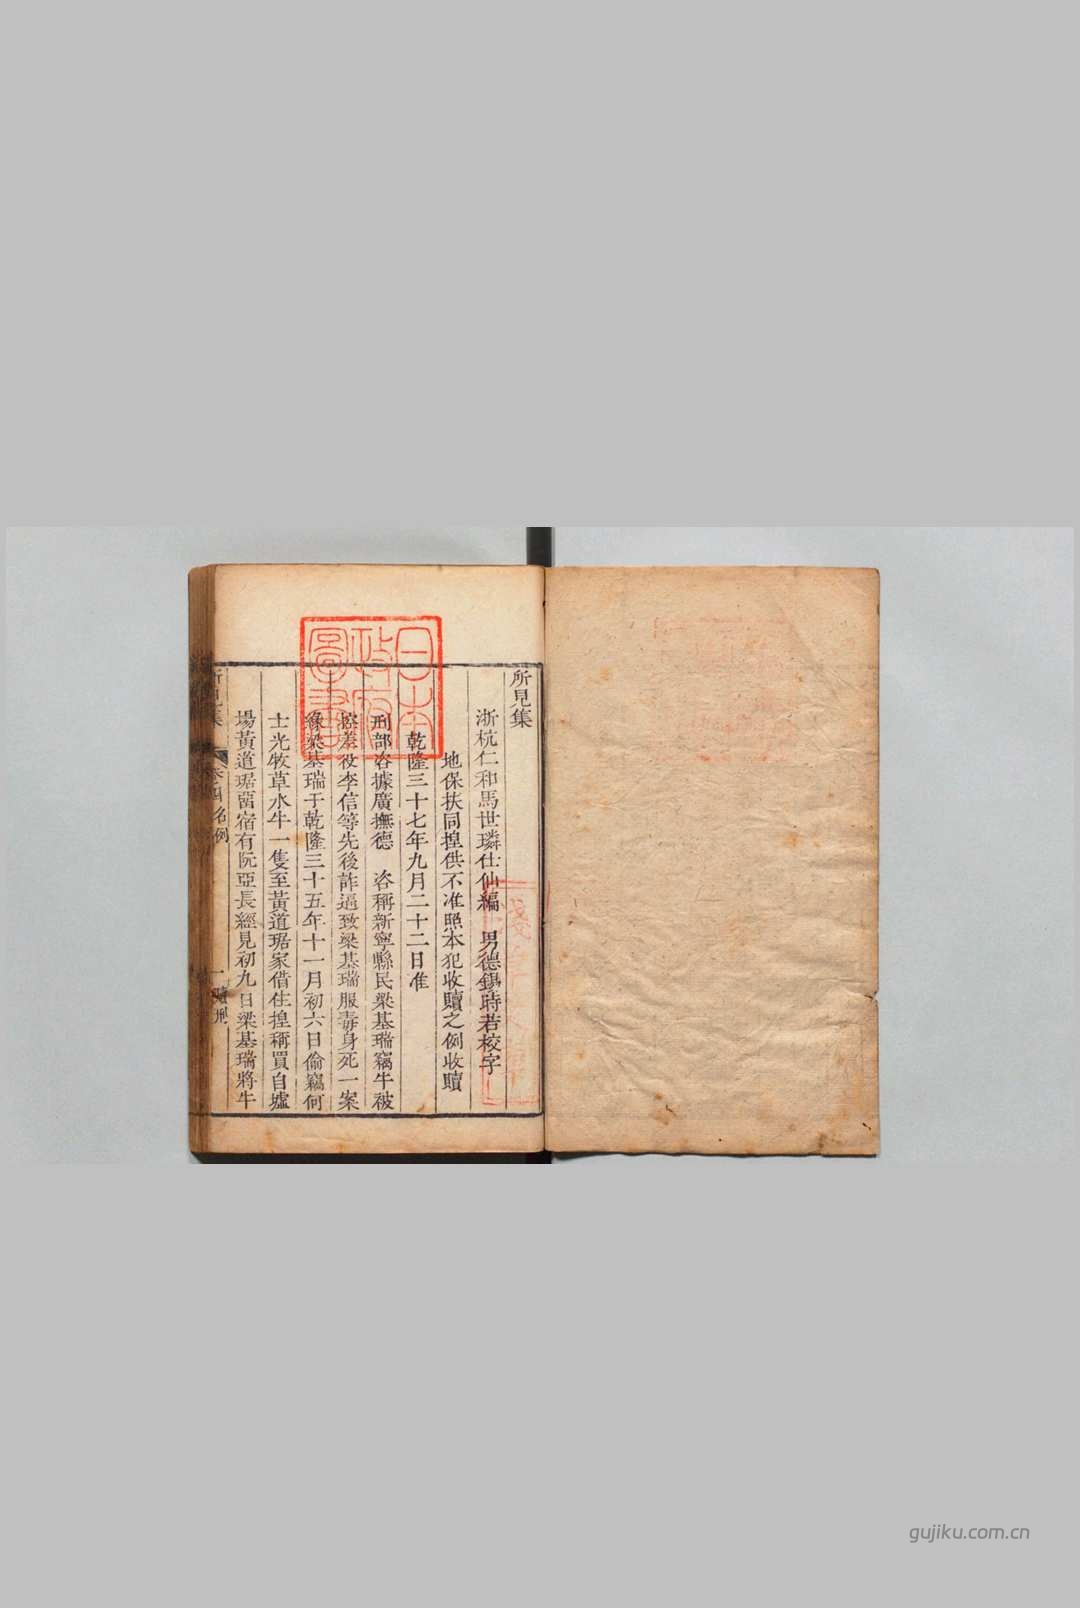 所見集
浙杭仁和馬世璘仕仙編　男德錫時若校字
地保扶同揑供不准照本犯收贖之例收贖
乾隆三十七年九月二十二日准
刑部咨據廣撫德　咨稱新寧縣民梁基瑞竊牛被
差役李信等先後詐逼致梁基瑞服毒身死一案
緣梁基瑞于乾隆三十五年十一月初六日偷竊何
士光牧草水牛一隻至黃道琚家借住揑稱買自墟
場黃道琚留宿有阮亞長經見初九日梁基瑞將牛
所見集　卷四名例　一
日本政府圖書
gujiku.com.cn